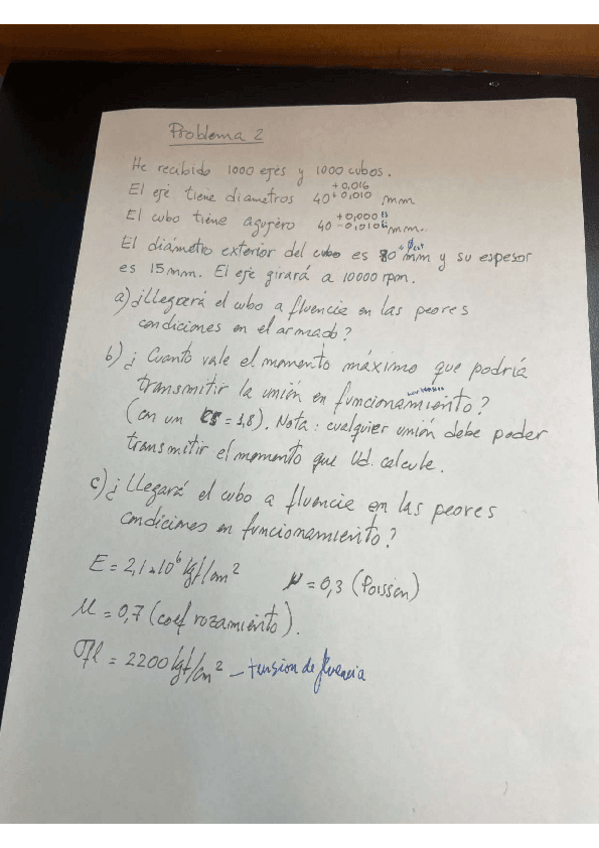 Problema 2
He recibido 1000 ejes y 1000 cubos.
El eje tiene diametros 40 +0,016 +0,010 mm
El cubo tiene agujero 40 +0,000 -0,010 mm.
El diámetro exterior del cubo es 80 mm y su espesor
es 15mm. El eje girará a 10000 rpm.
a) ¿Llegará el cubo a fluencia en las peores
condiciones en el armado?
b) ¿Cuanto vale el momento máximo que podría
transmitir la unión en funcionamiento?
(con un CS = 1,8). Nota: cualquier unión debe poder
transmitir el momento que Ud. calcule.
c) ¿Llegará el cubo a fluencia en las peores
condiciones en funcionamiento?
E = 2,1 x 10⁶ kgf/cm² μ = 0,3 (Poisson)
μ = 0,7 (coef rozamiento).
σfl = 2200 kgf/cm² - tension de fluencia